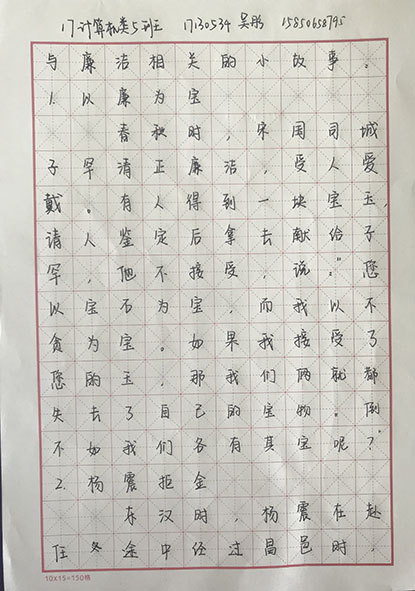 17计算机类5班 17130534 吴彤 15850658795
与廉洁相关的小故事。
1.以廉为宝
春秋时，宋国司城
子罕清正廉洁，受人爱
戴。有人得到一块宝玉，
请人鉴定后拿去献给子
罕，他不接受，说："您
以宝石为宝，而我以不
贪为宝。如果我接受了
您的玉，那我们俩就都
失去了自己的宝物。倒
不如我们各有其宝呢？"
2.杨震拒金
东汉时，杨震在赴
任冬途中经过昌邑时，
10×15=150格